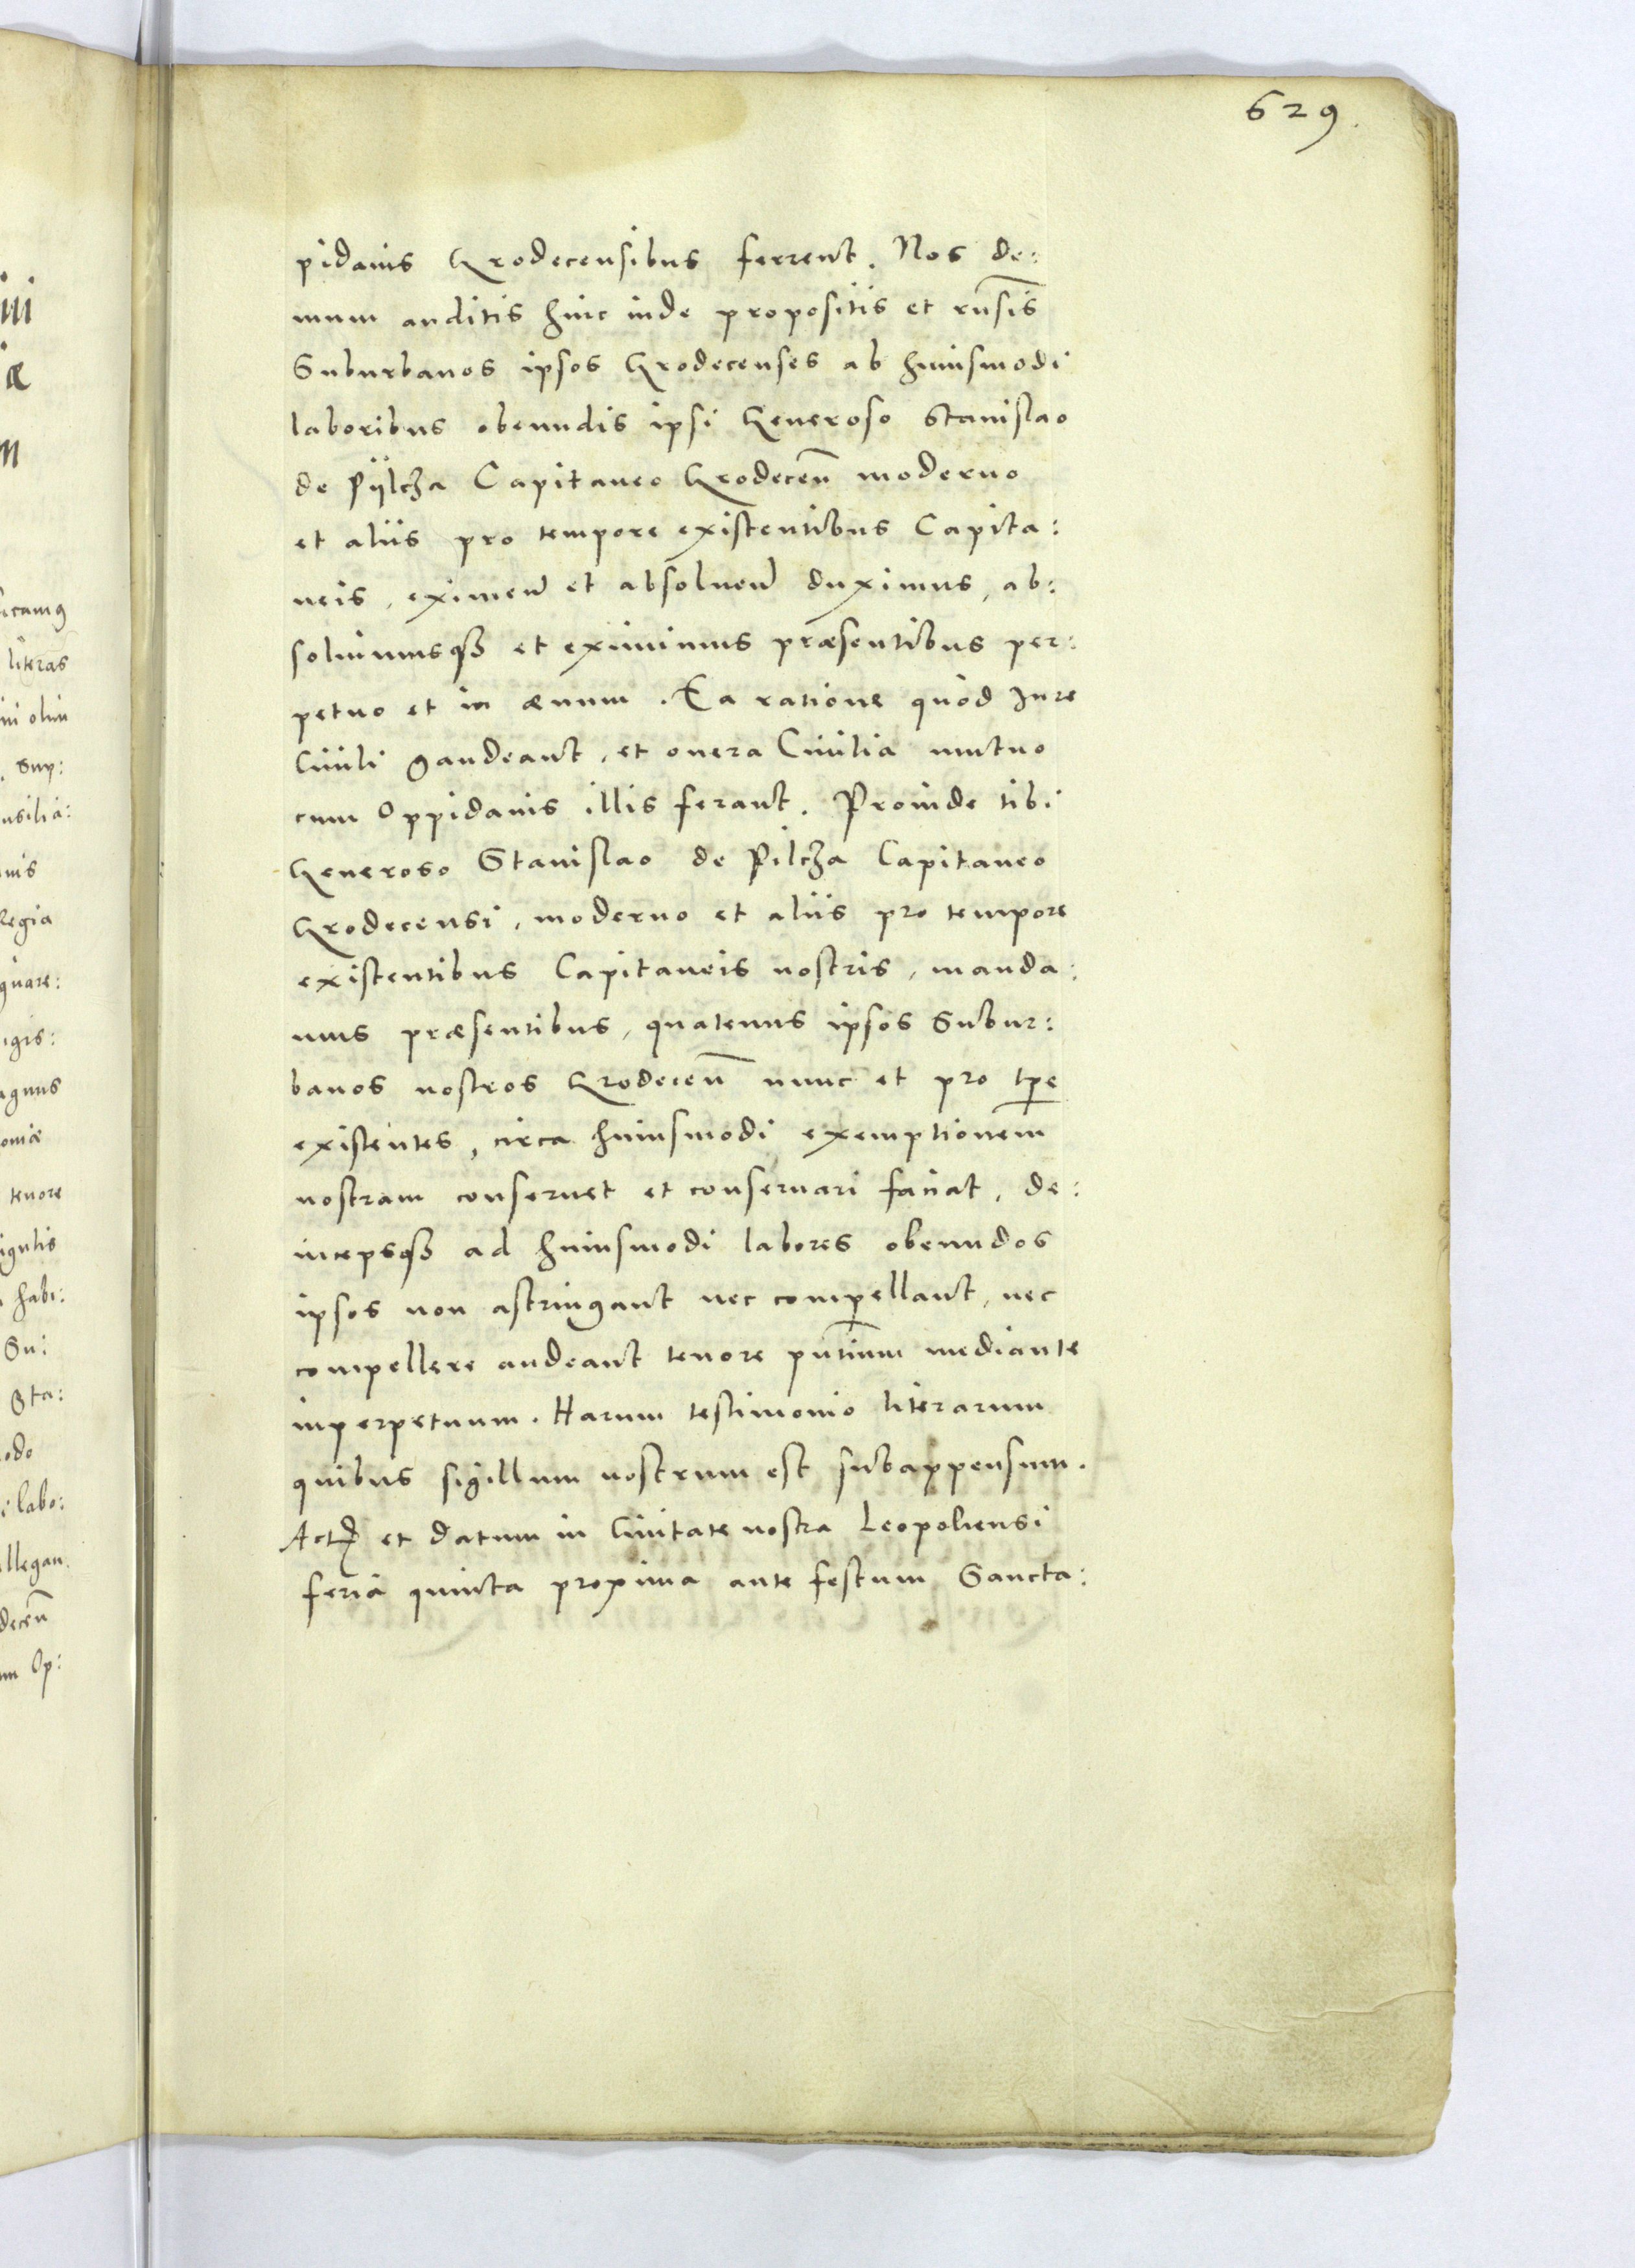 629.
pidanis Grodecensibus ferrent. Nos de:
mum auditis hinc inde propositis et rn̄sis
Suburbanos ipsos Grodecenses ab huiusmodi
laboribus obeundis ipsi Generoso Stanislao
de Pÿlcza Capitaneo Grodecen̄ moderno
et aliis pro tempore existentibus Capita:
neis, eximen̄ et absoluen̄ duximus, ab:
soluimusqꝫ et eximimus præsentibus per:
petuo et in æuum. Ea ratione quòd Jure
Ciuili gaudeant, et onera Ciuilia mutuo
cum Oppidanis illis ferant. Proinde tibi
Generoso Stanislao de Pilcza Capitaneo
Grodecensi, moderno et aliis pro tempore
existentibus Capitaneis nostris, manda:
mus præsentibus, quatenus ipsos Subur:
banos nostros Grodecen̄ nunc et pro tp̄e
existentes, circa huiusmodi exemptionem
nostram conseruet et conseruari faciat, de:
incepsqꝫ ad huiusmodi labores obeundos
ipsos non astringant nec compellant, nec
compellere audeant tenore pn̄tium mediante
inperpetuum. Harum testimonio literarum
quibus sigillum nostrum est subappensum.
Actꝭ et datum in Ciuitate nostra Leopoliensi
feria quinta proxima ante festum Sancta:
icamꝰ
literas
ni olim
Sup:
nsilia:
nis
Regia
quare:
igis:
agnus
oniæ
tenore
igulis
habi:
Su:
Sta:
odo
labo:
llegan.
decen̄
um Op: